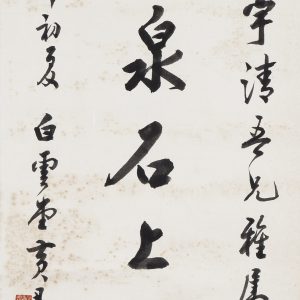 宇清吾兄雅屬
泉石上
初夏 白雲堂黃